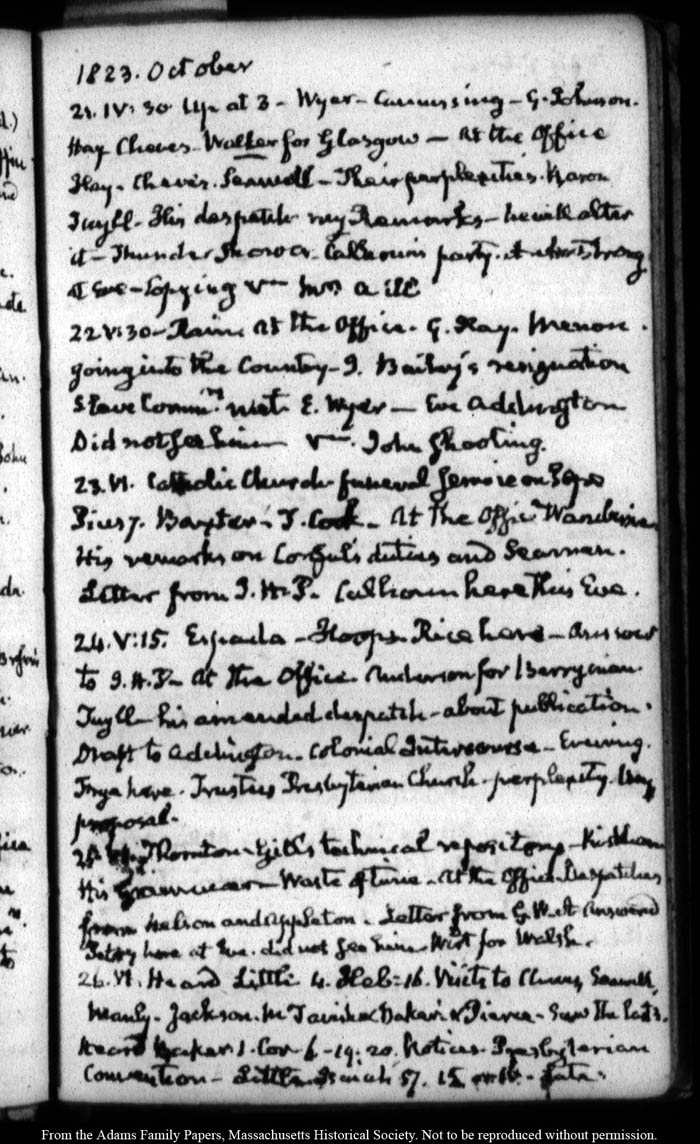 1823. October
21. IV:30 Up at 3 - Wyer - Canvassing - G. Johnson.
Hay Cheves - Walker for Glasgow - At the Office
Hay. Cheves. Seawell - Their perplexities. Baron
Tuyll - His despatch my Remarks - he will alter
it - Thunder Shower. Calhoun's party.
at Eve - Copying Mrs A ill
22 V:30 - Rain. At the Office. G. Hay.
going into the Country - J. Bailey's resignation
Slave Comm.n E. Wyer - Eve Addington
Did not see him John Shooting.
23. VI. Catholic Church funeral Service on Pope
Pius 7. Baxter - J. Cook - At the Office
His remarks on Consul's duties and Seamen.
Letter from J. H. P. Calhoun here this Eve.
24. V:15. Espada - Hoops. Rice here - answer
to J. H. P - At the Office. Anderson for Berryman.
Tuyll - his amended despatch - about publication.
Draft to Addington. Colonial Intercourse - Evening.
here. Trustees Presbyterian Church - perplexity. Hay
proposal.
25. Thornton - Gill's technical repository - Kirkham
His Grammar - Waste of time - At the Office. Despatches
from Nelson and Appleton. Letter from G. W. A answered
here at Eve. did not see him. Wirt for Walsh.
26. VI. Heard Little 4. Heb: 16. Visits to Seawell
Jackson. Baker & Pierce - Saw the
Heard Baker 1. Cor 6 - 19. 20. Notices - Presbyterian
Convention - Little Isaiah 57. 15
From the Adams Family Papers, Massachusetts Historical Society. Not to be reproduced without permission.